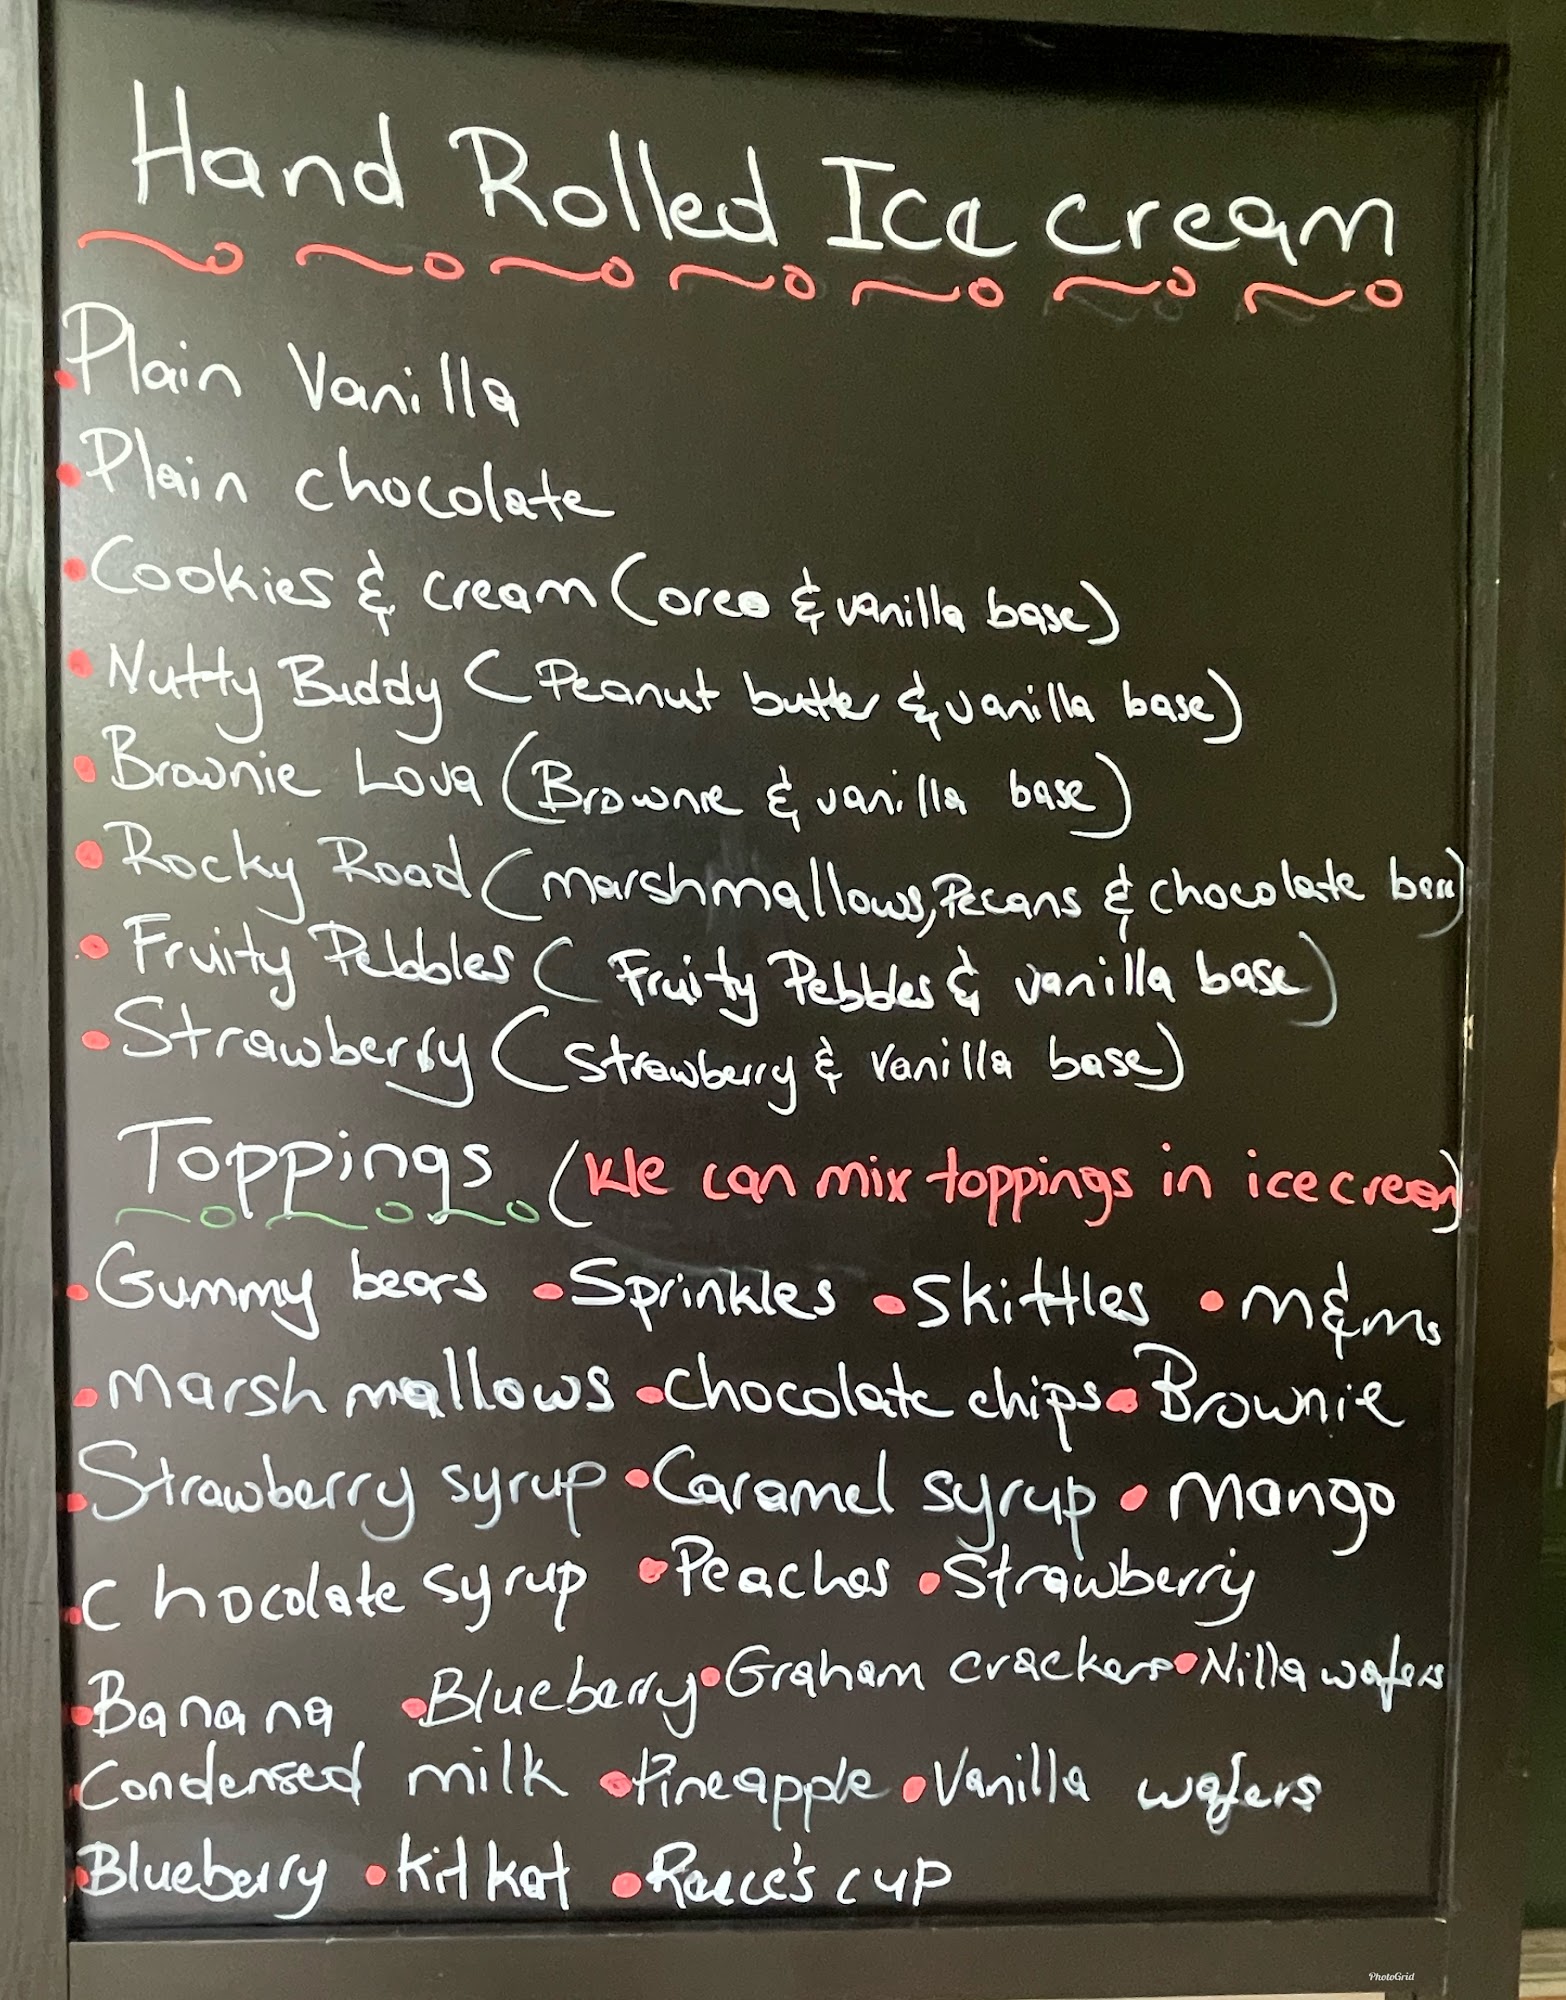 Hand Rolled Ice cream
Plain Vanilla
Plain chocolate
Cookies & cream (oreo & vanilla base)
Nutty Buddy (Peanut butter & vanilla base)
Brownie Lova (Brownie & vanilla base)
Rocky Road (marshmallows, Pecans & chocolate base)
Fruity Pebbles (Fruity Pebbles & vanilla base)
Strawberry (strawberry & vanilla base)
Toppings (We can mix toppings in ice cream)
Gummy bears • Sprinkles • Skittles • M&Ms
marshmallows • chocolate chips • Brownie
Strawberry syrup • Caramel syrup • Mango
chocolate syrup • Peaches • Strawberry
Banana • Blueberry • Graham crackers • Nilla wafers
Condensed milk • Pineapple • Vanilla wafers
Blueberry • Kitkat • Reece's cup
PhotoGrid